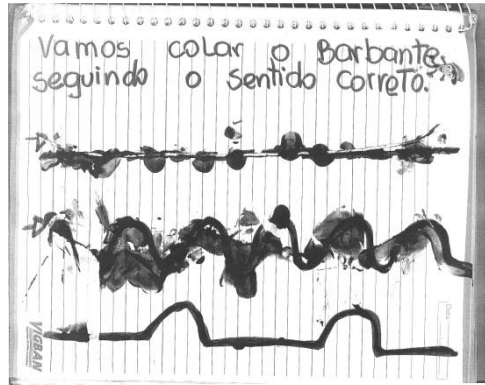 Vamos colar o Barbante
seguindo o sentido correto.
VIGBAN